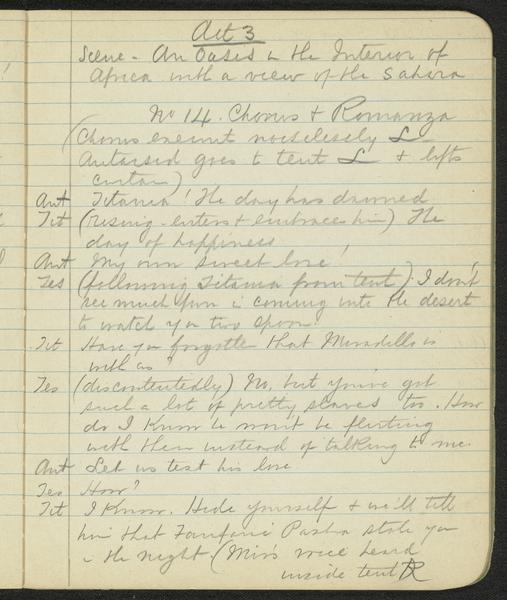 Act 3
Scene - An Oasis in the Interior of
Africa with a view of the Sahara
No 14. Chorus & Romanza
(Chorus exeunt noiselessly L
Antarsid goes to tent L & lifts
curtain)
Ant Titania! The day has dawned
Tit (rising - enters & embraces him) The
day of happiness
Ant My own sweet love!
Tes (following Titania from tent) I don't
see much fun in coming into the desert
to watch you two spoon!
Tit Have you forgotten that Miradillo is
with us?
Tes (discontentedly) No, but you've got
such a lot of pretty slaves too. How
do I know he won't be flirting
with them instead of talking to me.
Ant Let us test his love
Tes How?
Tit I know. Hide yourself & we'll tell
him that Fanfani Pasha stole you
in the night (Mir's voice heard
inside tent R